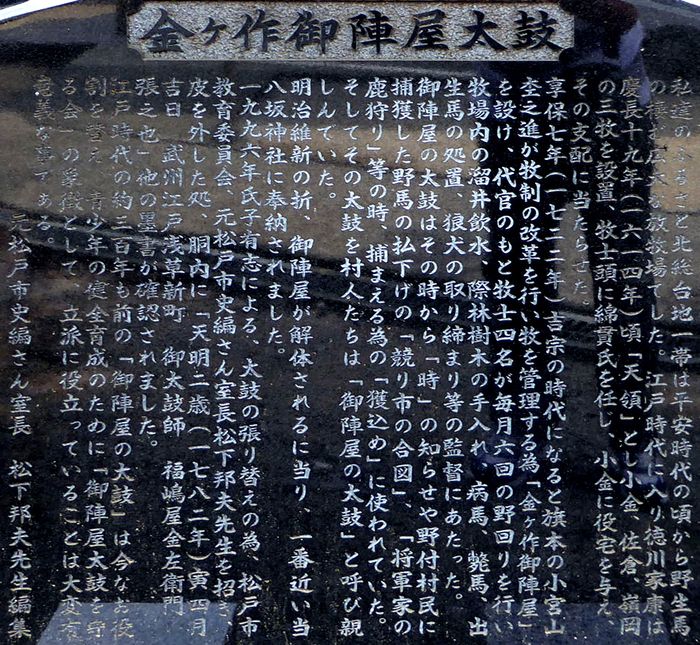 金ヶ作御陣屋太鼓
私達のふるさと北総台地一帯は平安時代の頃から野生馬
の棲む広大な放牧場でした。江戸時代に入り徳川家康は
慶長十九年(一六一四年)頃「天領」とし小金、佐倉、嶺岡
の三牧を設置、牧士頭に綿貫氏を任し、小金に役宅を与え、
その支配に当たらせた。
享保七年(一七二二年)吉宗の時代になると旗本の小宮山
杢之進が牧制の改革を行い牧を管理する為「金ヶ作御陣屋」
を設け、代官のもと牧士四名が毎月六回の野回りを行い
牧場内の溜井飲水、際林樹木の手入れ、病馬、斃馬、出
生馬の処置、狼犬の取り締まり等の監督にあたった。
御陣屋の太鼓はその時から「時」の知らせや野付村民に
捕獲した野馬の払下げの「競り市の合図」、「将軍家の
鹿狩り」等の時、捕まえる為の「獲込め」に使われていた。
そしてその太鼓を村人たちは「御陣屋の太鼓」と呼び親
しんでいた。
明治維新の折、御陣屋が解体されるに当り、一番近い当
八坂神社に奉納されました。
一九九六年氏子有志による、太鼓の張り替えの為、松戸市
教育委員会、元松戸市史編さん室長松下邦夫先生を招き
皮を外した処、胴内に「天明二歳(一七八二年)寅四月
吉日 武州江戸浅草新町 御太鼓師 福嶋屋金左衛門、
張之也」他の墨書が確認されました。
江戸時代の約三百年も前の「御陣屋の太鼓」は今なお役
割を替え、青少年の健全育成のために「御陣屋太鼓を守
る会」の象徴として、立派に役立っていることは大変有
意義な事である。
元松戸市史編さん室長 松下邦夫先生編集